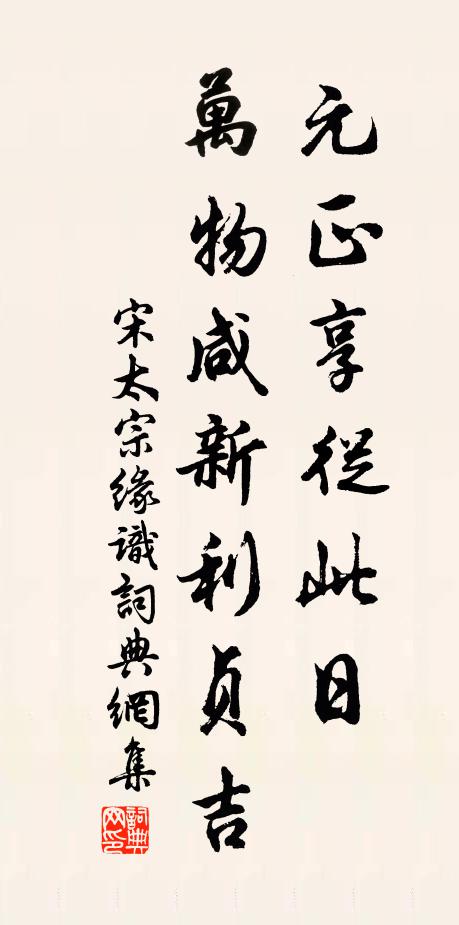 元正享從此日
萬物咸新利貞吉
宋太宗緣識詞典網集
詞典網印